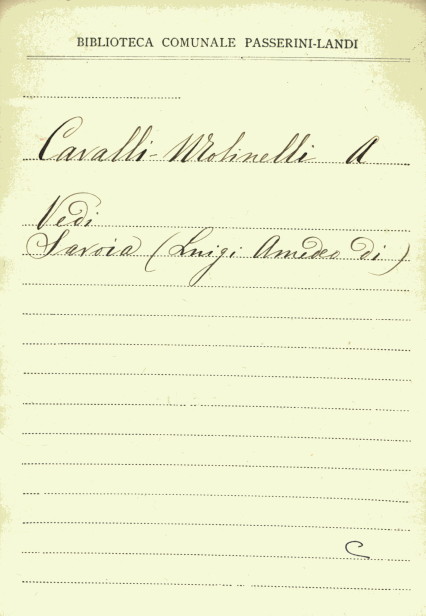 BIBLIOTECA COMUNALE PASSERINI-LANDI
Cavalli-Molinelli A
Vedi
Savoia (Luigi Amedeo di)
C